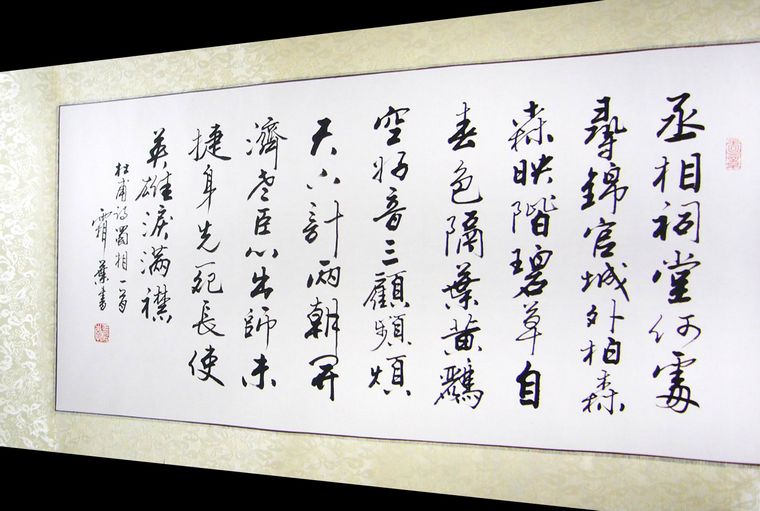 丞相祠堂何處
尋錦官城外柏森
森映階碧草自
春色隔葉黄鸝
空好音三顧頻煩
天下計兩朝開
濟老臣心出師未
捷身先死長使
英雄淚滿襟
杜甫詩蜀相一首
霜葉書